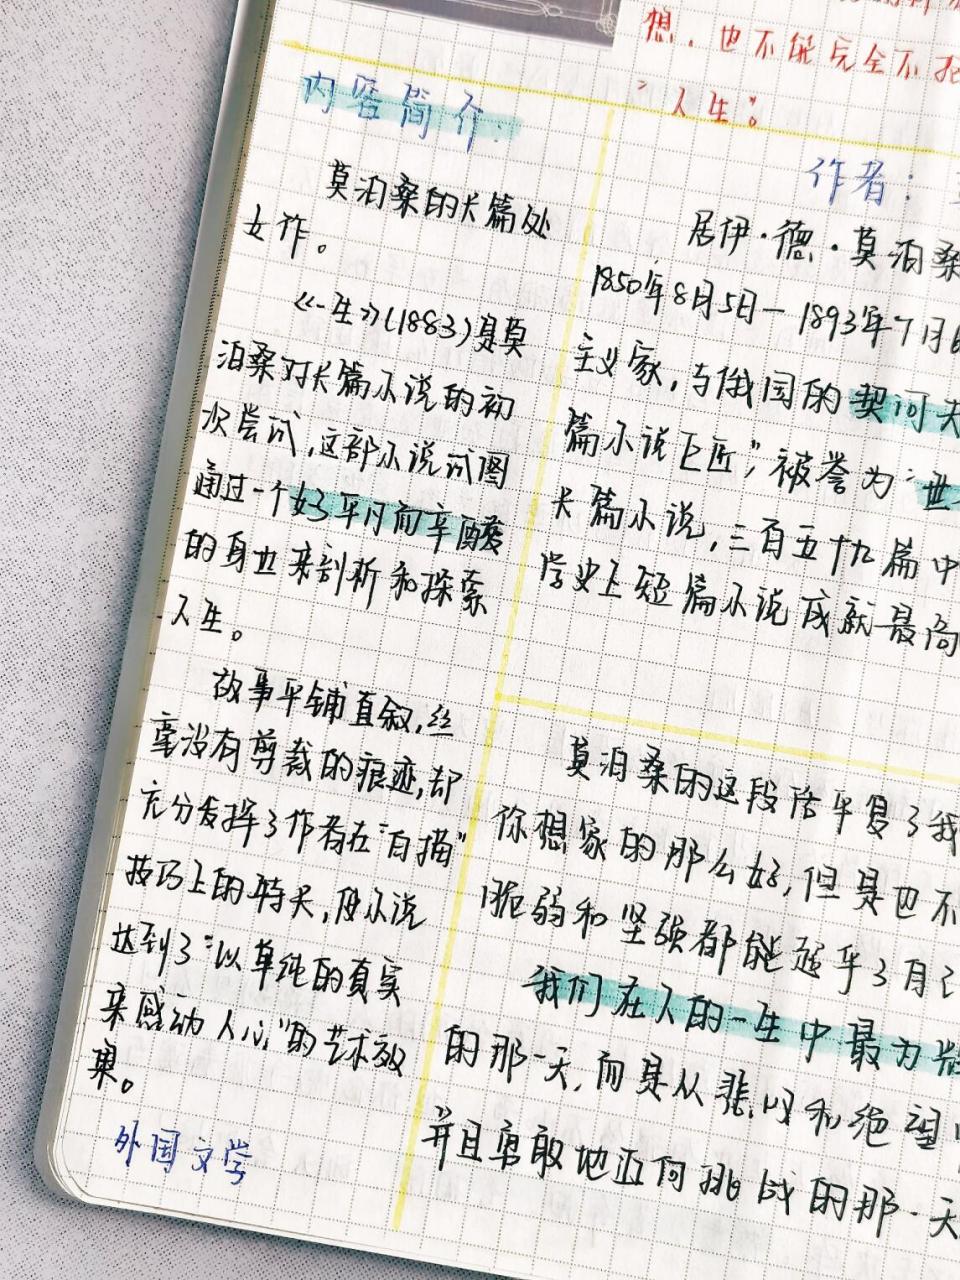 想，也不能完全不把
人生"。
内容简介：
莫泊桑的长篇处
女作。
《一生》(1883)是莫
泊桑对长篇小说的初
次尝试，这部小说试图
通过一个好平凡而辛酸
的身世来剖析和探索
人生。
故事平铺直叙，丝
毫没有剪裁的痕迹，却
充分发挥了作者在"白描"
技巧上的特长，使小说
达到了"以单纯的真实
来感动人心"的艺术效
果。
外国文学
作者：
居伊·德·莫泊桑
1850年8月5日—1893年7月6
主义家，与俄国的契诃夫
篇小说巨匠"，被誉为"世
长篇小说，三百五十九篇中
学史上短篇小说成就最高
莫泊桑的这段话平复了我
你想象的那么好，但是也不
脆弱和坚强都能超乎了自己
我们在人的一生中最为
的那一天，而是从悲叹和绝望
并且勇敢地迈向挑战的那一天